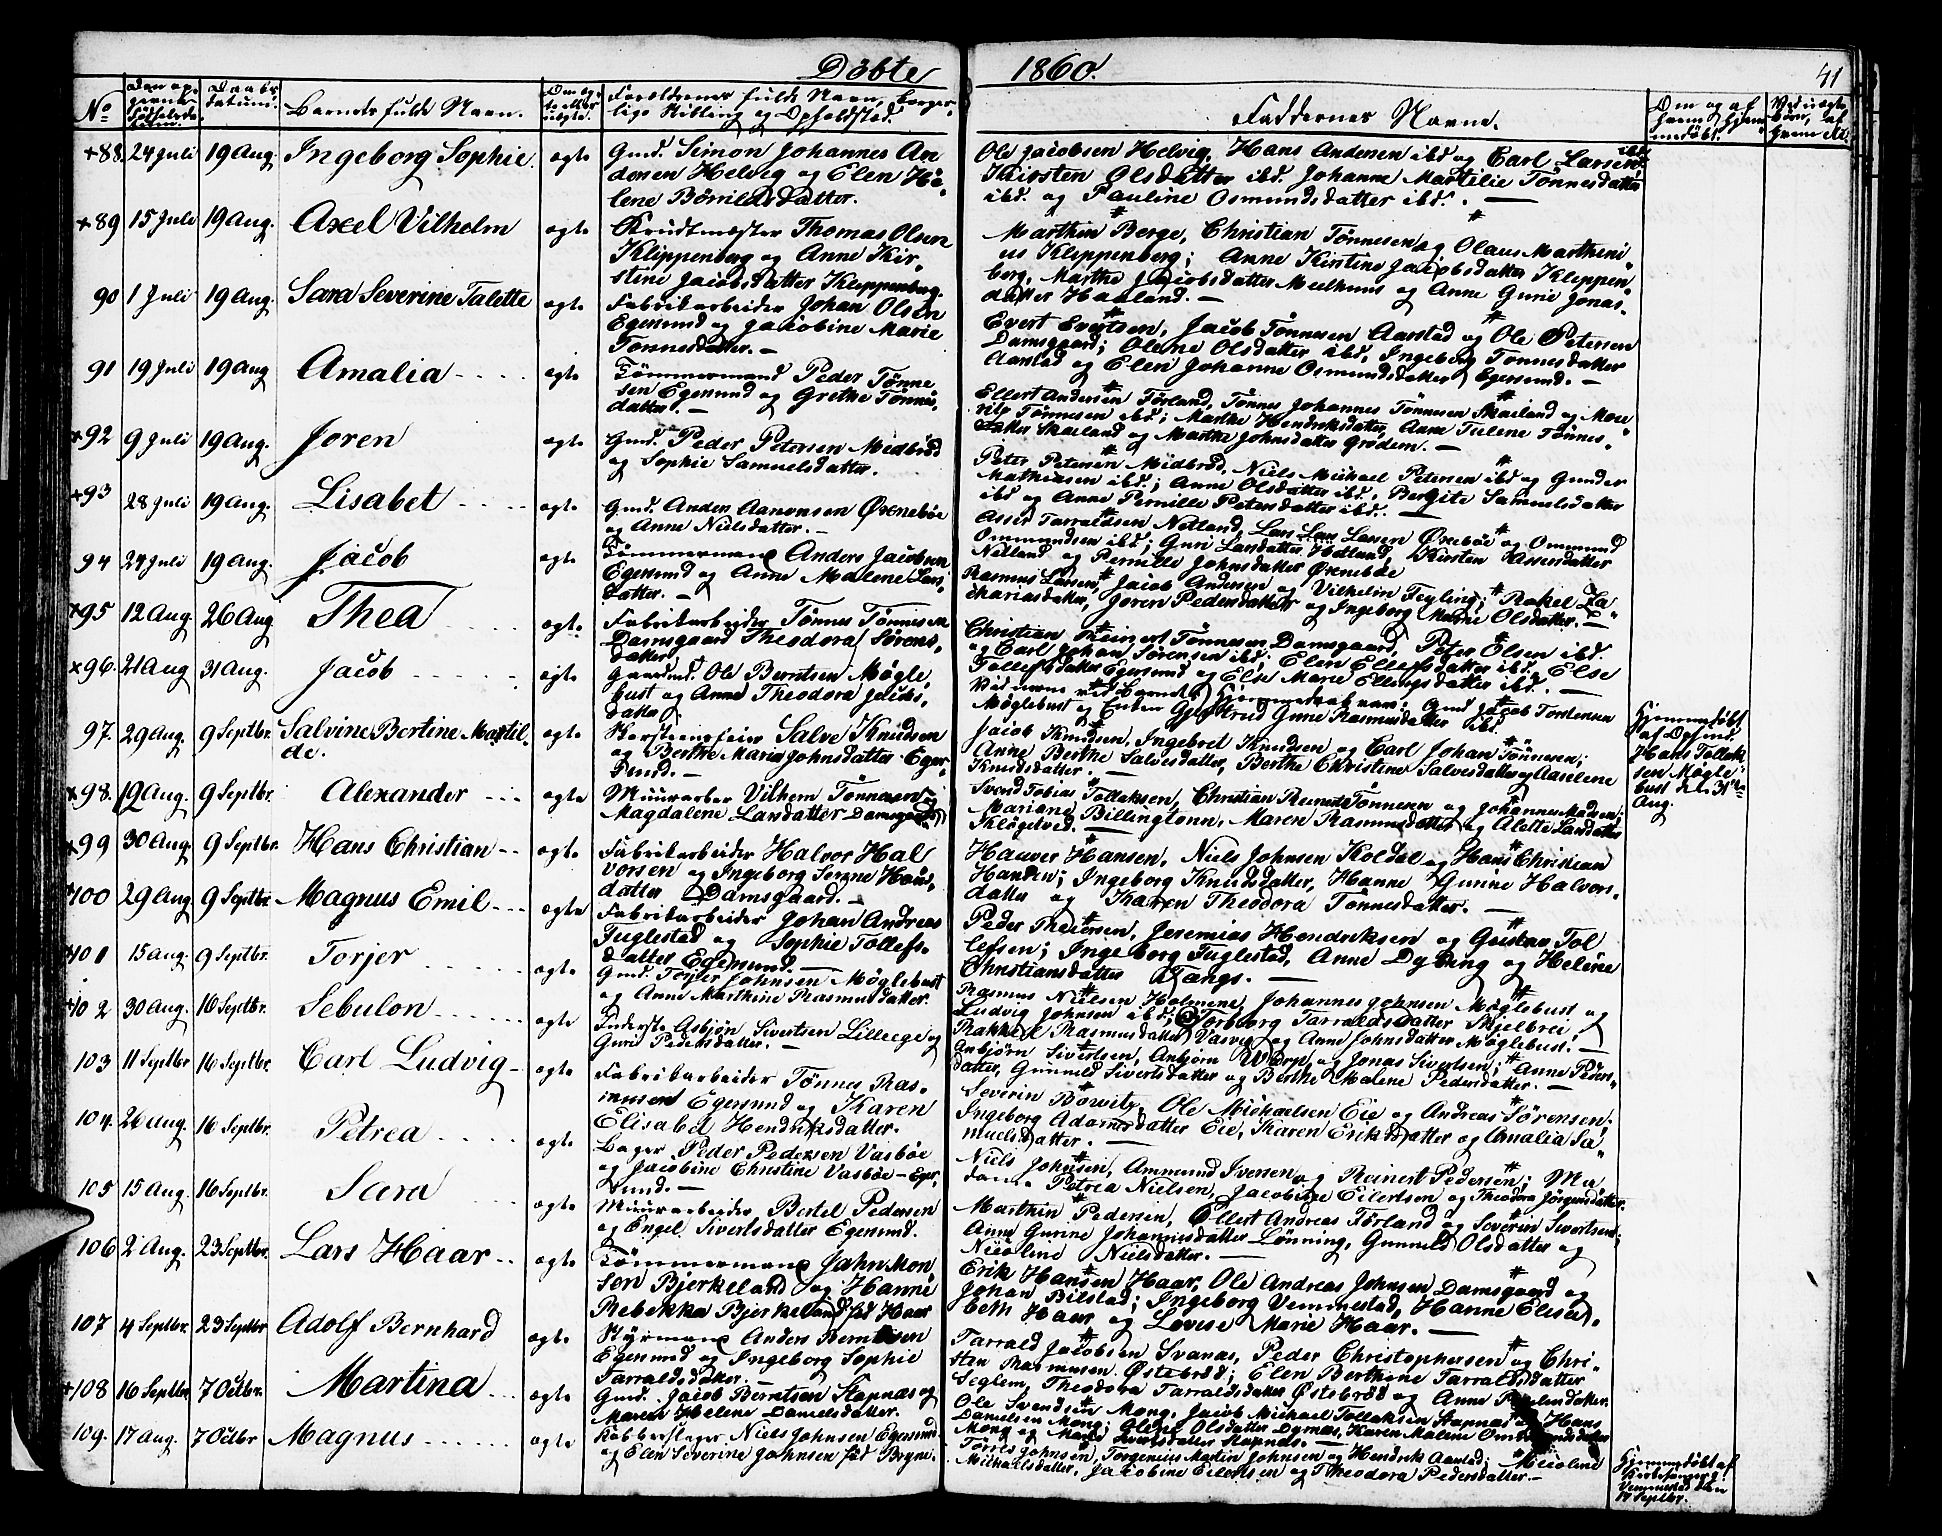 Döbte 1860. 41
No Barnets fulde Navn. Forældrenes fulde Navn, borgerlige Stilling og Opholdsted. Faddernes Navne.
+88. 24 Juli 19 Aug. Ingeborg Sophie. ægte Gmd. Simon Johannes An
dersen Helvig og Elen Hé
lene Börrildsdatter.
Ole Jacobsen Helvig, Hans Andersen ibd og Carl Larsen ibd.
Kirsten Olsdatter ibd. Johanne Martilie Tönnesdatter
ibd. og Pauline Osmundsdatter ibd. —
+89 15 Juli 19 Aug. Axel Vilhelm ægte Krudtmester Thomas Olsen
Klippenberg og Anne Kir-
stine Jacobsdatter Klippenberg.
Marthin Berge, Christian Tönnesen og Olaus Martheni-
us Klippenberg; Anne Kirstine Jacobsdatter Klippen
berg, Marthe Jacobsdatter Melhuus og Anne Gurie Jonas-
datter Haaland. —
90 1 Juli 19 Aug. Sara Severine Talette ægte Fabrikarbeider Johan Olsen
Egersund og Jacobine Marie
Tonnesdatter. —
Evert Evertsen, Jacob Tönnesen Aarstad og Ole Petersen
Damsgaard; Olene Olsdatter ibd, Ingeborg Tonnesdatter
Aarstad og Elen Johanne Osmundsdatter Egersund. —
91 19 Juli 19 Aug Amalia ægte Tömmermand Peder Tönne
sen Egersund og Grethe Tönnes-
datter. —
Ellert Andersen Förland, Tönnes Johannes Tönnesen Skaeland og
Tönnesen ibd; Marthe Hendriksdatter, Anne Tulene Tönnes-
datter Skaeland og Marthe Johnsdatter Grödem. —
+92 9 Juli 19 Aug. Joren ægte Gmd. Peder Petersen Midbröd
og Sophie Samuelsdatter.
Peter Petersen Midbröd, Niels Michael Petersen ibd og Gunder
Mathiasen ibd; Anne Olsdatter ibd. Bergite Samuelsdatter
ibd og Anne Pernille Petersdatter ibd. —
+93 28 Juli 19 Aug. Lisabet ægte Gmd. Anders Aanensen Öxnebøe
og Anne Nielsdatter. —
Asser Tarraldsen Netland, Lars Larsen Öxnebøe og Ommund
Ommundsen ibd; Guri Larsdatter Hetland, Kirsten Assersdatter
Netland og Pernille Johnsdatter Öxnebøe
94 24 Juli 19 Aug. Jacob ægte Tömmermand Anders Jacobsen
Egersund og Anne Malene Lars-
datter. —
Rasmus Larsen, Jacob Andersen og Vilhelm Feyling; Rakel Za-
chariasdatter, Joren Pedersdatter og Ingeborg Marie Olsdatter. —
+95 12 Aug. 26 Aug Thea ægte. Fabrikarbeider Tönnes Tönnesen
Damsgaard Theodora Sörens-
datter
Christian Reinert Tönnesen Damsgaard, Peter Olsen ibd.
og Carl Johan Sörensen ibd; Elen Ellefsdatter ibd, Else
Tollefsdatter Egersund og Else Marie Ellingsdatter ibd. —
+96. 21 Aug 31 Aug. Jacob ægte Gaardmd. Ole Berntsen Mögle
bust og Anne Theodora Jacobs-
datter
Gmd Jacob Tordensen
Möglebust og Enken Gjertrud Gurine Rasmusdatter ibd.
97. 29 Aug. 9 Septbr. Salvine Bertine Martil-
de. ægte Skorsteensfeier Salve Knudsen
og Berthe Maria Johnsdatter Eger
sund. —
Jacob Knudsen, Ingebret Knudsen og Carl Johan Tönnesen;
Anne Berthe Salvesdatter, Berthe Christine Salvesdatter og Aaselene
Knudsdatter. —
Hjemmedöbt
af Gmd.
Hans Tollak-
sen Mögle-
bust d. 31te
Aug.
+98. 12 Aug. 9 Septbr. Alexander ægte Muurarber Vilhem Tönnesen og
Magdalene Larsdatter Damsgaard
Svend Tobias Tollaksen, Christian Reinert Tönnesen og Johannes Madsen;
Mariane Billingtonn, Maren Rasmusdatter og Alette Larsdatter
Klögetved. —
+99 30 Aug. 9 Septbr. Hans Christian ægte Fabrikarbeider Halvor Hal
vorsen og Ingeborg Serine Hans-
datter Damsgaard. —
Hauver Hansen, Niels Johnsen Koldal og Hans Christian
Hansen; Ingeborg Knudsdatter, Hanne Gurine Halvors-
datter og Karen Theodora Tönnesdatter. —
+100 29 Aug 9 Septbr. Magnus Emil ægte Fabrikarbeider Johan Andreas
Fuglestad og Sophie Tollefs-
datter Egersund. —
Peder Thetersen, Jeremias Hendriksen og Gustav Tol
lefsen; Ingeborg Fuglestad, Anne Dybing og Helene
Christiansdatter Stangs. —
+101 15 Aug. 9 Septbr. Torjer ægte. Gmd. Torjer Johnsen Möglebust
og Anne Marthine Rasmusdatter.
Rasmus Nielsen Holmene, Johannes Johnsen Möglebust og
Ludvig Johnsen ibd; Torborg Tarraldsdatter Skjelbrei
Rakkel Rasmusdatter Vasvig og Anne Johnsdatter Möglebust. —
+102 30 Aug. 16 Septbr. Sebulon ægte Inderste Asbjön Sivertsen Lilleege og
Guri Pedersdatter. —
Anbjörn Sivertsen, Anbjörn og Jonas Sivertsen; Anne Peders-
datter, Gunneld Sivertsdatter og Berthe Malene Pedersdatter. —
103 11 Septbr 16 Septbr. Carl Ludvig ægte Fabrikarbeider Tönnes Ras-
mussen Egersund og Karen
Elisabet Hendriksdatter.
Severin Bowitz, Ole Michaelsen Eie og Andreas Sörensen;
Ingeborg Adamsdatter Eie, Karen Eriksdatter og Amalia Sa-
muelsdatter. —
104. 26 Aug. 16 Septbr. Petrea ægte Bager Peder Pedersen Vasbøe
og Jacobine Christine Vasbøe — Eger-
sund. —
Niels Johnsen, Ammund Iversen og Reinert Pedersen; Ma
dam Petrea Nielsen, Jacobine Eilertsen og Theodora Jörgensdatter.
105 15 Aug. 16 Septbr. Sara ægte Muurarbeider Bertel Pedersen
og Engel Sivertsdatter Egersund.
Marthin Pedersen, Ellert Andreas Förland og Severin Sivertsen;
Anne Gurine Johannisdatter Lönning, Gunneld Olsdatter og
Nicoline Nielsdatter. —
106 2 Aug. 23 Septbr. Lars Haar ægte Tömmermand Jahn Mon
son Bjerkeland og Hanne
Rebekka Bjerkeland föd Haar
Erik Hansen Haar, Ole Andreas Johnsen Damsgaard og
Johan Bilstad; Ingeborg Vemmestad, Hanne Elisa-
beth Haar og Lovise Marie Haar. —
107 4 Septbr. 23 Septbr Adolf Bernhard ægte Styrmand Anders Berntsen
Egersund og Ingeborg Sophie
Tarraldsdatter. —
Tarrald Jacobsen Svanes, Peder Christophersen og Chri-
sten Rasmussen Östebröd; Elen Berthine Tarraldsdatter
Seglem, Theodora Tarraldsdatter Östebröd og Anne datter.
+108 16 Septbr. 7 Octbr. Martina ægte Gmd. Jacob Berntsen Stapnæs og
Maren Helene Danielsdatter.
Ole Svendsen Mong, Jacob Michael Tollaksen Stapnæs og Hans
Danielsen Mong; Olene Olsdatter Dyrnæs, Karen Malene
Mong og Stapnæs. —
109. 17 Aug. 7 Octbr Magnus ægte Kobberslager Niels Johnsen Egersund
og Elen Severine Johnsen föd Brÿne.
Torres Johnsen, Torgenius Martin Johnsen og Hendrik Aastad; Nicoline
Michaelsdatter, Jacobine Eilertsen og Theodora Pedersdatter. —
Hjemmedöbt af
Kirkesanger
Vemmestad den
17 Septbr.